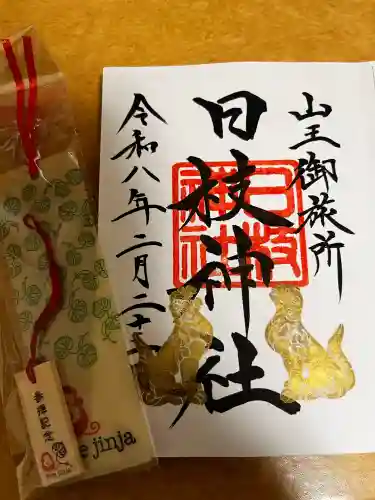 山王御旅所
日枝神社
日枝神社
令和八年二月二十
参拝記念
e jinja